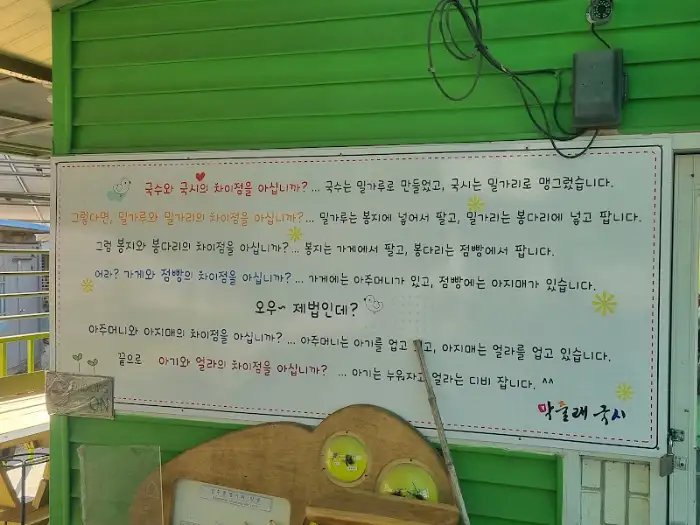 국수와 국시의 차이점을 아십니까? ... 국수는 밀가루로 만들었고, 국시는 밀가리로 맹그렀습니다.
그렇다면, 밀가루와 밀가리의 차이점을 아십니까? ... 밀가루는 봉지에 넣어서 팔고, 밀가리는 봉다리에 넣고 팝니다.
그럼 봉지와 봉다리의 차이점을 아십니까? ... 봉지는 가게에서 팔고, 봉다리는 점빵에서 팝니다.
어라? 가게와 점빵의 차이점을 아십니까? ... 가게에는 아주머니가 있고, 점빵에는 아지매가 있습니다.
오우~ 제법인데?
아주머니와 아지매의 차이점을 아십니까? ... 아주머니는 아기를 업고 고, 아지매는 얼라를 업고 있습니다.
끝으로 아기와 얼라의 차이점을 아십니까? ... 아기는 누워자고 얼라는 디비 잡니다. ^^
막둘래 국시